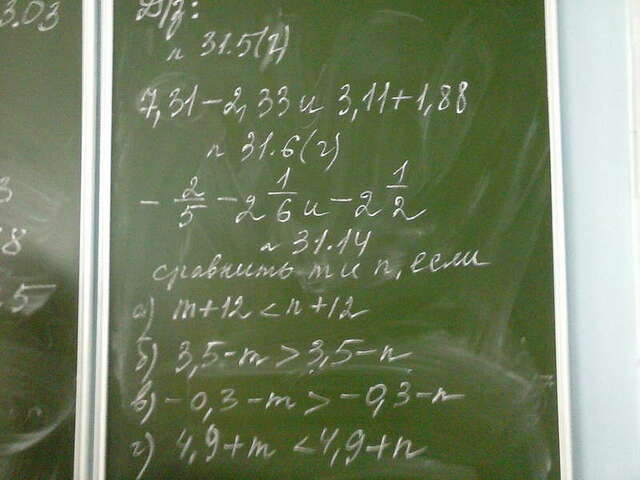 3.03
Д/з:
n 31.5(г)
7,31-2,33 и 3,11+1,88
n 31.6(г)
- 2/5 - 2 1/6 и - 2 1/2
n 31.14
сравнить m и n, если
а) m+12 < n+12
б) 3,5-m > 3,5-n
в) -0,3-m > -0,3-n
г) 4,9+m < 4,9+n
3
8
5